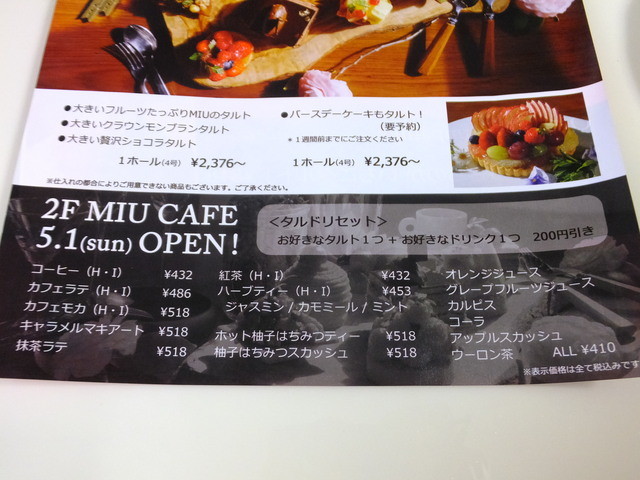 ●大きいフルーツたっぷりMIUのタルト
●大きいクラウンモンブランタルト
●大きい贅沢ショコラタルト
1ホール(4号) ¥2,376〜
●バースデーケーキもタルト！
(要予約)
＊1週間前までにご注文ください
1ホール(4号) ¥2,376〜
※仕入れの都合によりご用意できない商品もございます。ご了承ください。
2F MIU CAFE
5.1(sun) OPEN！
＜タルドリセット＞
お好きなタルト1つ + お好きなドリンク1つ 200円引き
コーヒー（H・I） ¥432
カフェラテ（H・I） ¥486
カフェモカ（H・I） ¥518
キャラメルマキアート ¥518
抹茶ラテ ¥518
紅茶（H・I） ¥432
ハーブティー（H・I） ¥453
ジャスミン / カモミール / ミント
ホット柚子はちみつティー ¥518
柚子はちみつスカッシュ ¥518
オレンジジュース
グレープフルーツジュース
カルピス
コーラ
アップルスカッシュ
ウーロン茶 ALL ¥410
※表示価格は全て税込みです